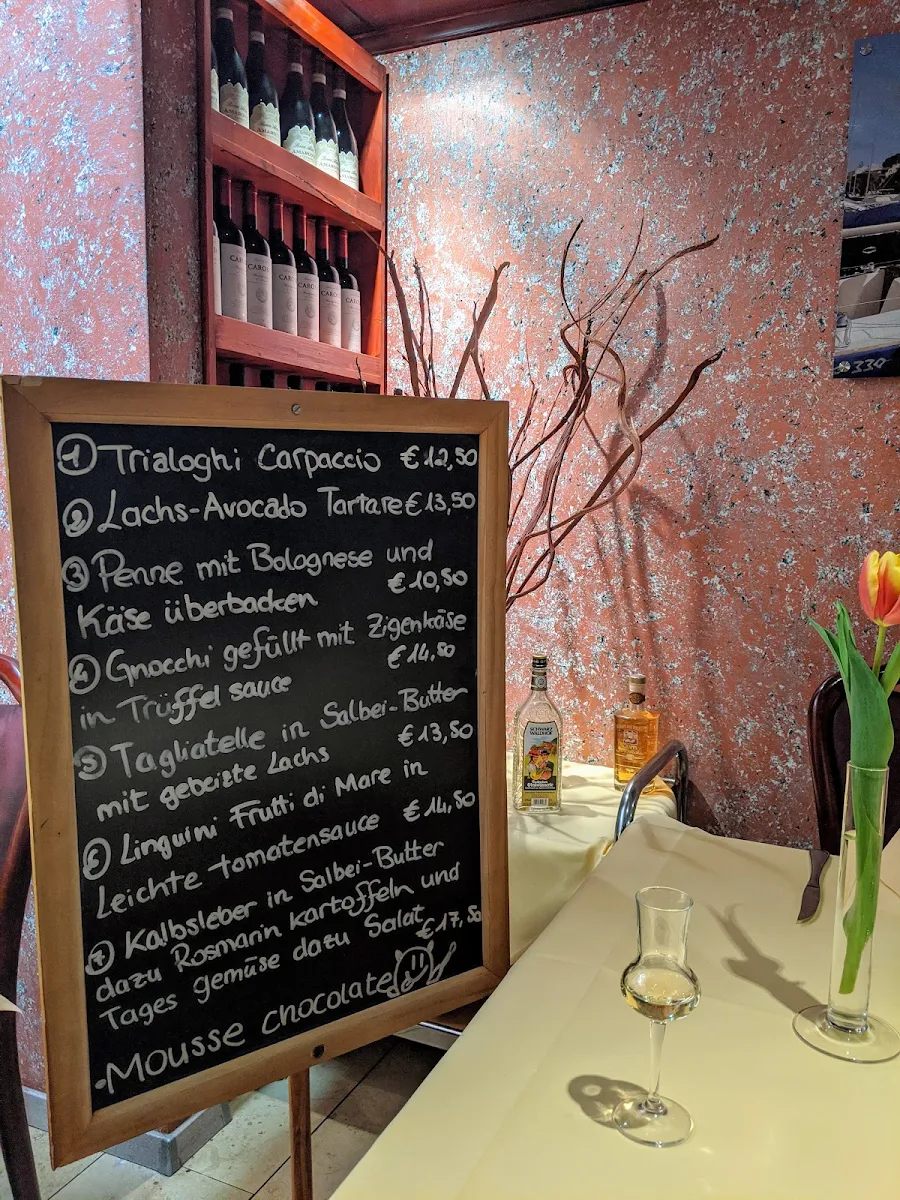 AMARONE
CARO
CARO
CARO
CARO
339
① Trialoghi Carpaccio €12,50
② Lachs-Avocado Tartare €13,50
③ Penne mit Bolognese und
€10,50
Käse überbacken
④ Gnocchi gefüllt mit Zigenkäse
€14,50
in Trüffel sauce
⑤ Tagliatelle in Salbei-Butter
€13,50
mit gebeizte Lachs
⑥ Linguini Frutti di Mare in
€14,50
Leichte tomatensauce
⑦ Kalbsleber in Salbei-Butter
dazu Rosmarin kartoffeln und
€17,50
Tages gemüse dazu Salat
-Mousse chocolate
SCHWARZ
WALDHOF